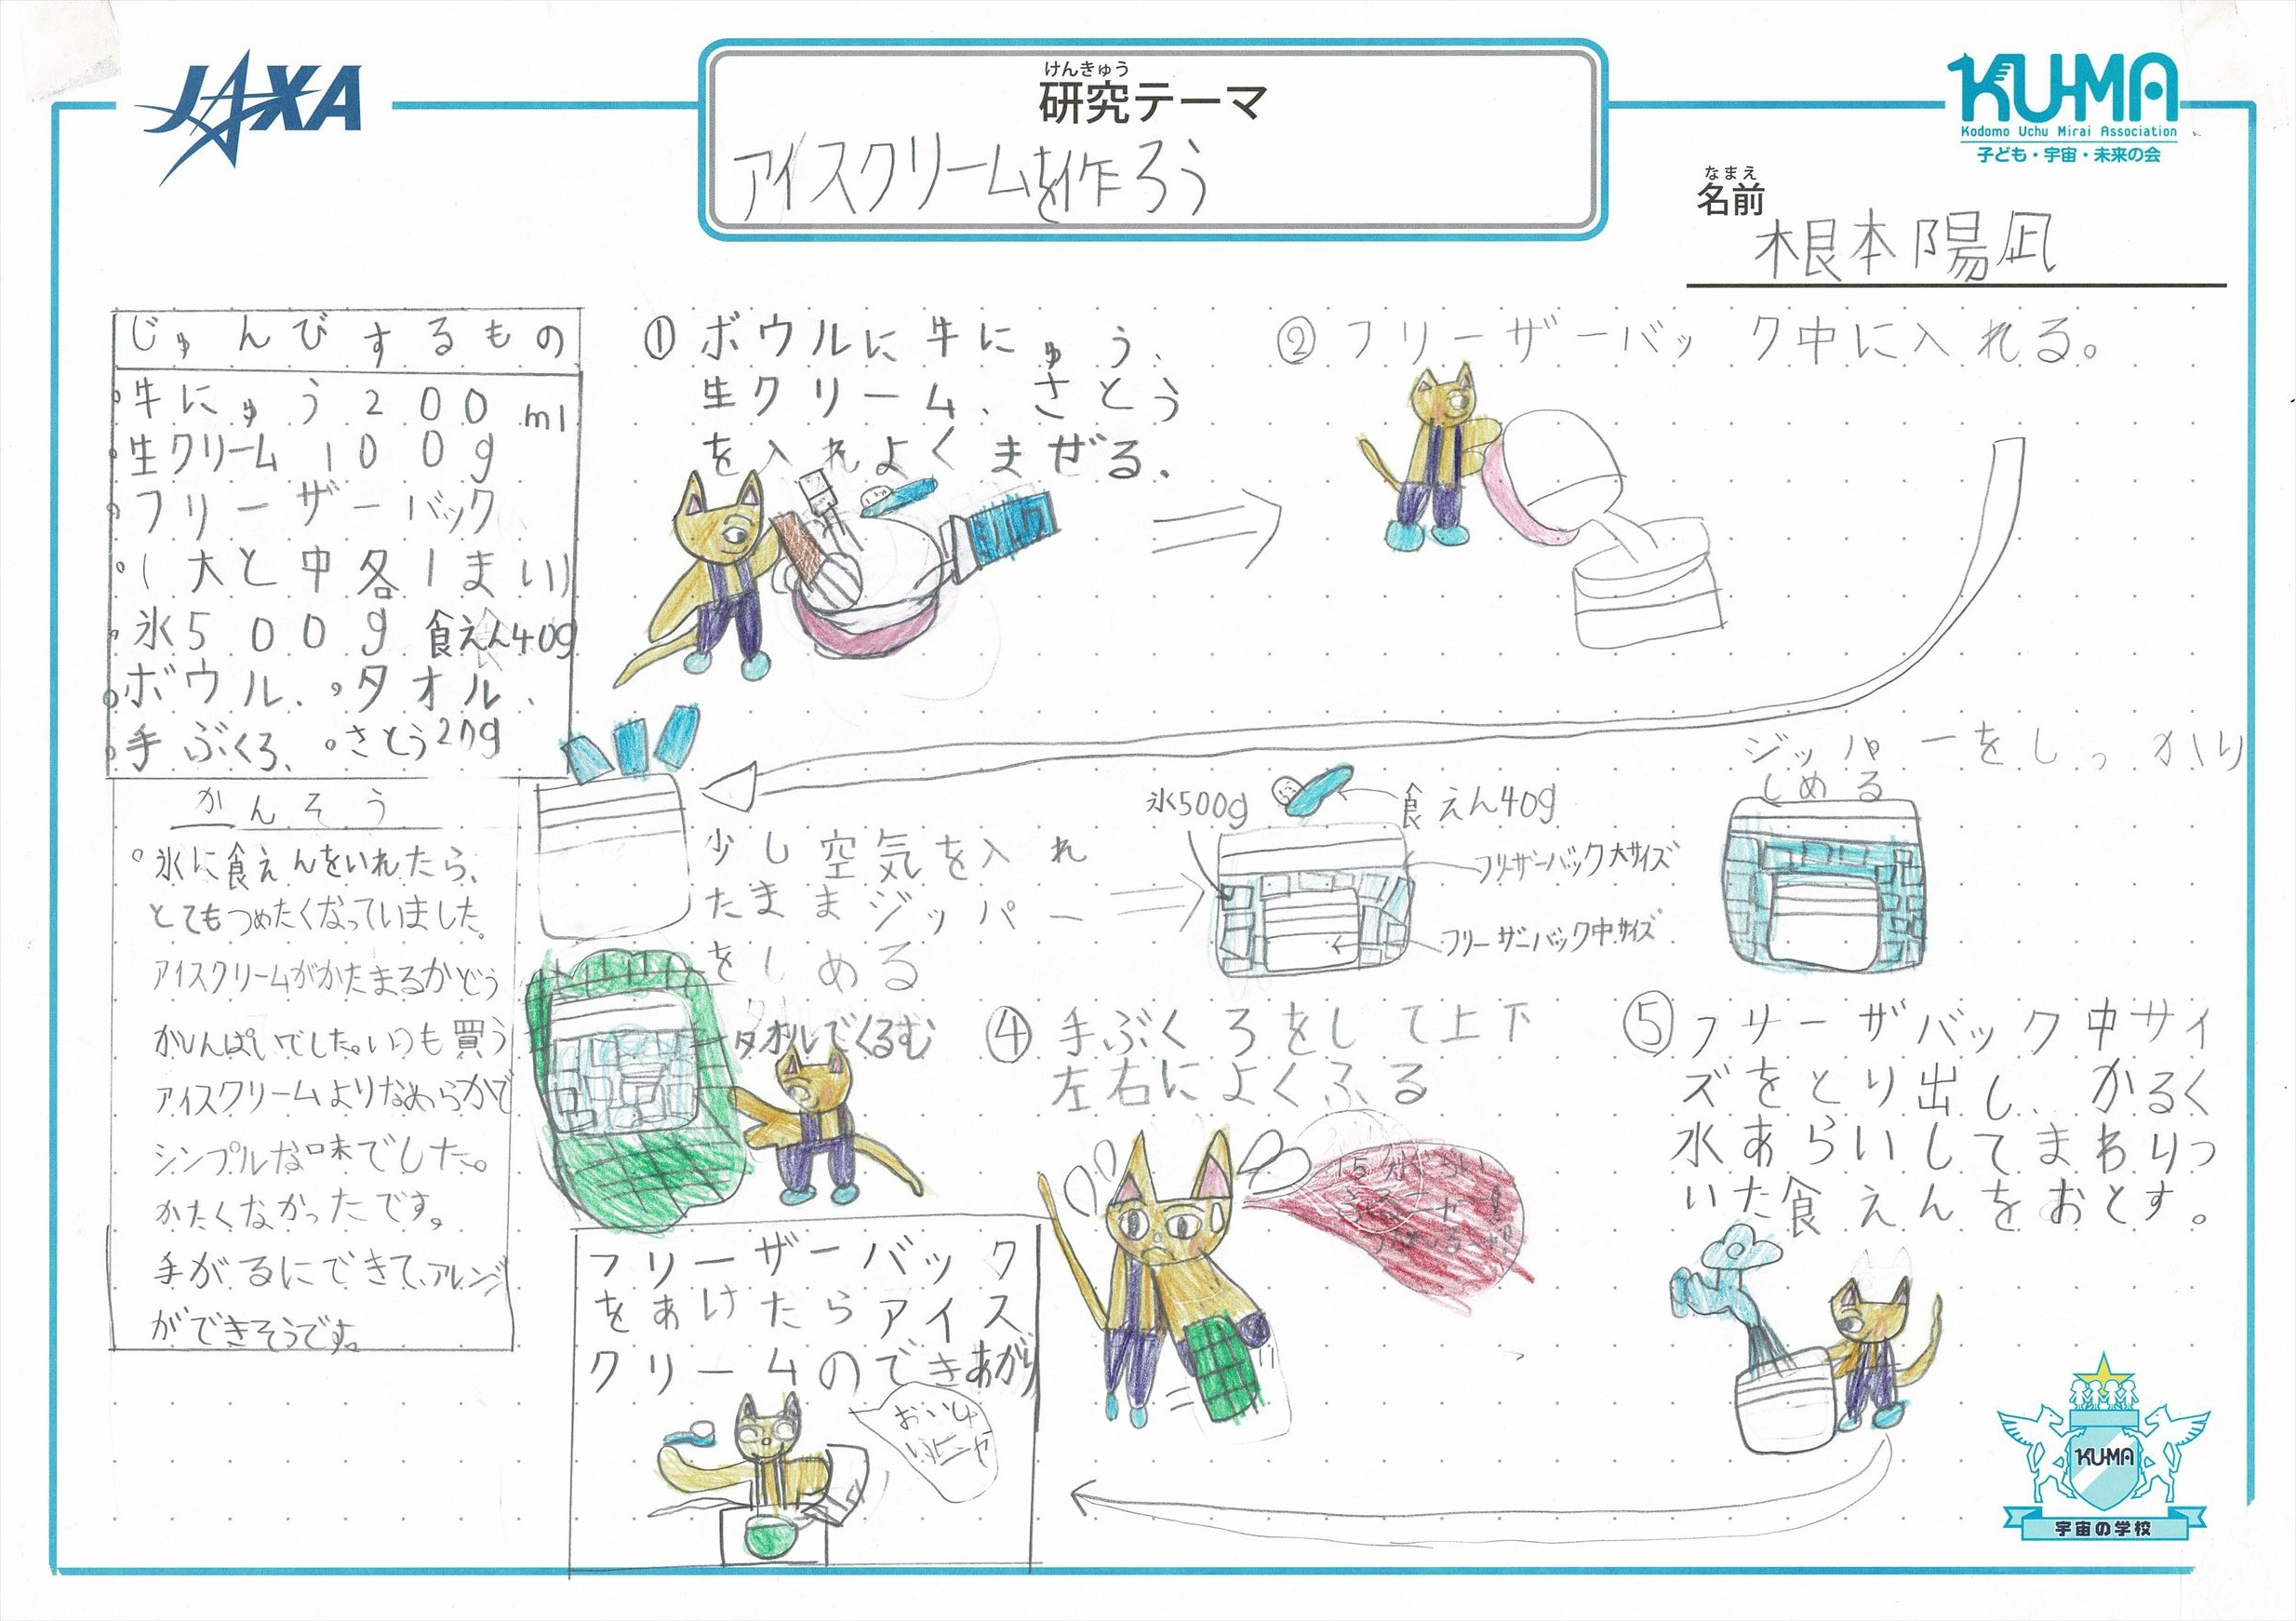 JAXA
けんきゅう
研究テーマ
アイスクリームを作ろう
KU-MA
Kodomo Uchu Mirai Association
子ども・宇宙・未来の会
なまえ
名前
根本陽凪
じゅんびするもの
・牛にゅう200ml
・生クリーム100g
・フリーザーバック
・(大と中各1まい)
・氷500g 食えん40g
・ボウル、・タオル、
・手ぶくろ、・さとう20g
かんそう
・氷に食えんをいれたら、
とてもつめたくなっていました。
アイスクリームがかたまるかどう
かしんぱいでした。いつも買う
アイスクリームよりなめらかで
シンプルな味でした。
かたくなかったです。
手がるにできて、アレンジ
ができそうです。
①ボウルに牛にゅう、
生クリーム、さとう
を入れよくまぜる.
②フリーザーバック中に入れる。
少し空気を入れ
たままジッパー
をしめる
氷500g
食えん40g
フリーザーバック大サイズ
フリーザーバック中サイズ
ジッパーをしっかり
しめる
タオルでくるむ
④手ぶくろをして上下
左右によくふる
15分くらい
⑤フリーザバック中サイ
ズをとり出し、かるく
水あらいしてまわりつ
いた食えんをおとす。
フリーザーバック
をあけたらアイス
クリームのできあがり
KU-MA
宇宙の学校